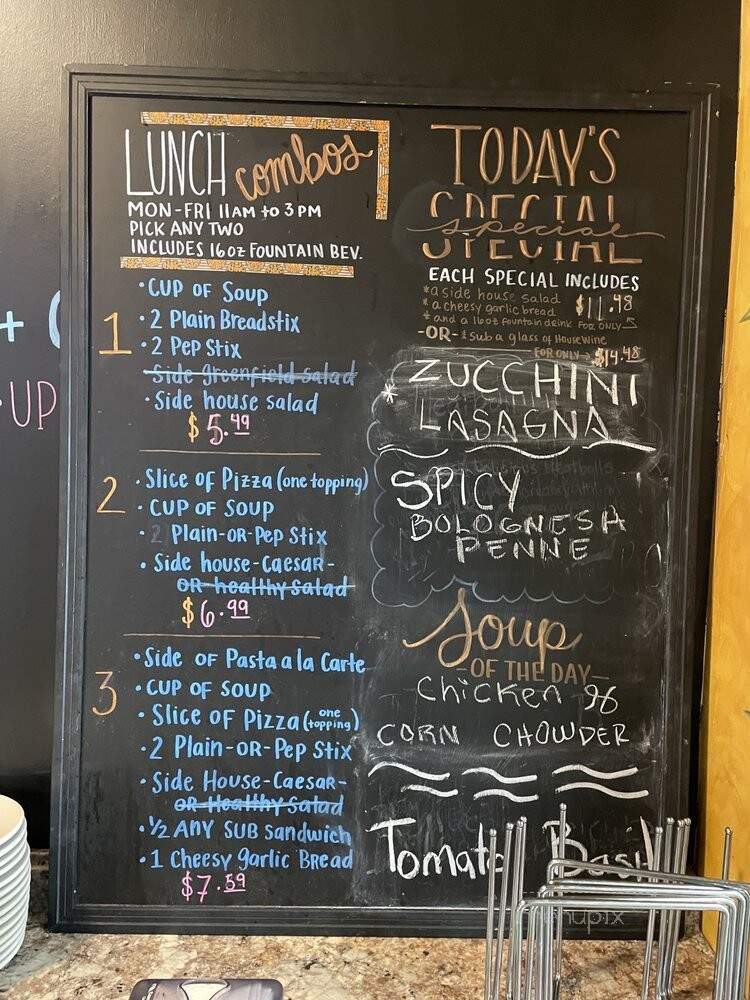 LUNCH combos
MON-FRI 11AM to 3PM
PICK ANY TWO
INCLUDES 16oz FOUNTAIN BEV.
1
• CUP OF SOUP
• 2 Plain Breadstix
• 2 Pep Stix
Side greenfield salad
• Side house salad
$5.49
2
• Slice of Pizza (one topping)
• CUP OF SOUP
• 2 Plain-OR-Pep Stix
• Side house-Caesar-
OR-healthy Salad
$6.99
3
• Side OF Pasta a la Carte
• CUP OF SOUP
• Slice OF Pizza (one topping)
• 2 Plain-OR-Pep Stix
• Side House-Caesar-
OR-Healthy Salad
• 1/2 ANY SUB Sandwich
• 1 Cheesy garlic Bread
$7.59
TODAY'S
SPECIAL
special
EACH SPECIAL INCLUDES
*a side house salad
*a cheesy garlic bread $11.48
*and a 16oz fountain drink FOR ONLY
-OR- *Sub a glass of House Wine
FOR ONLY → $14.48
* ZUCCHINI
LASAGNA
SPICY
BOLOGNESA
PENNE
Soup
-OF THE DAY-
Chicken &
CORN CHOWDER
Tomato Basil
UP